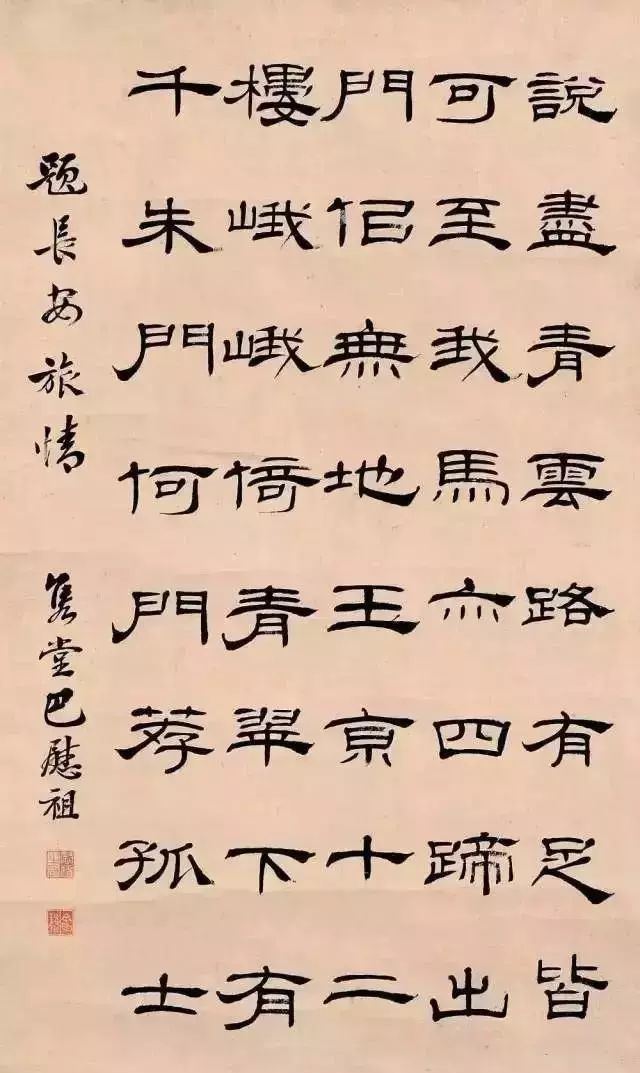 說盡青雲路有足皆
可至我馬亦四蹄出
門佀無地玉京十二
樓峨峨倚青翠下有
千朱門何門薦孤士
題長安旅情
雋堂巴慰祖